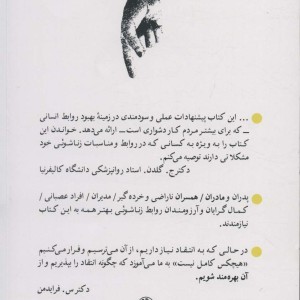 ... این کتاب پیشنهادات عملی و سودمندی در زمینهٔ بهبود روابط انسانی
ـ که برای بیشتر مردم کار دشواری است ـ ارائه می‌دهد. خواندن این
کتاب را به ویژه به کسانی که در روابط و مناسبات زناشوئی خود
مشکلاتی دارند توصیه می‌کنم.
دکتر ج. گلدن. استاد روانپزشکی دانشگاه کالیفرنیا
پدران و مادران / همسران ناراضی و خرده گیر / مدیران / افراد عصبانی /
کمال گرایان و آرزومندان روابط زناشوئی بهتر همه به این کتاب
نیازمندند.
در حالی که به انتقاد نیاز داریم، از آن می‌ترسیم و فرار می‌کنیم
«هیچکس کامل نیست» به ما می‌آموزد که چگونه انتقاد را بپذیریم و از
آن بهره‌مند شویم.
دکتر س. فرایدمن